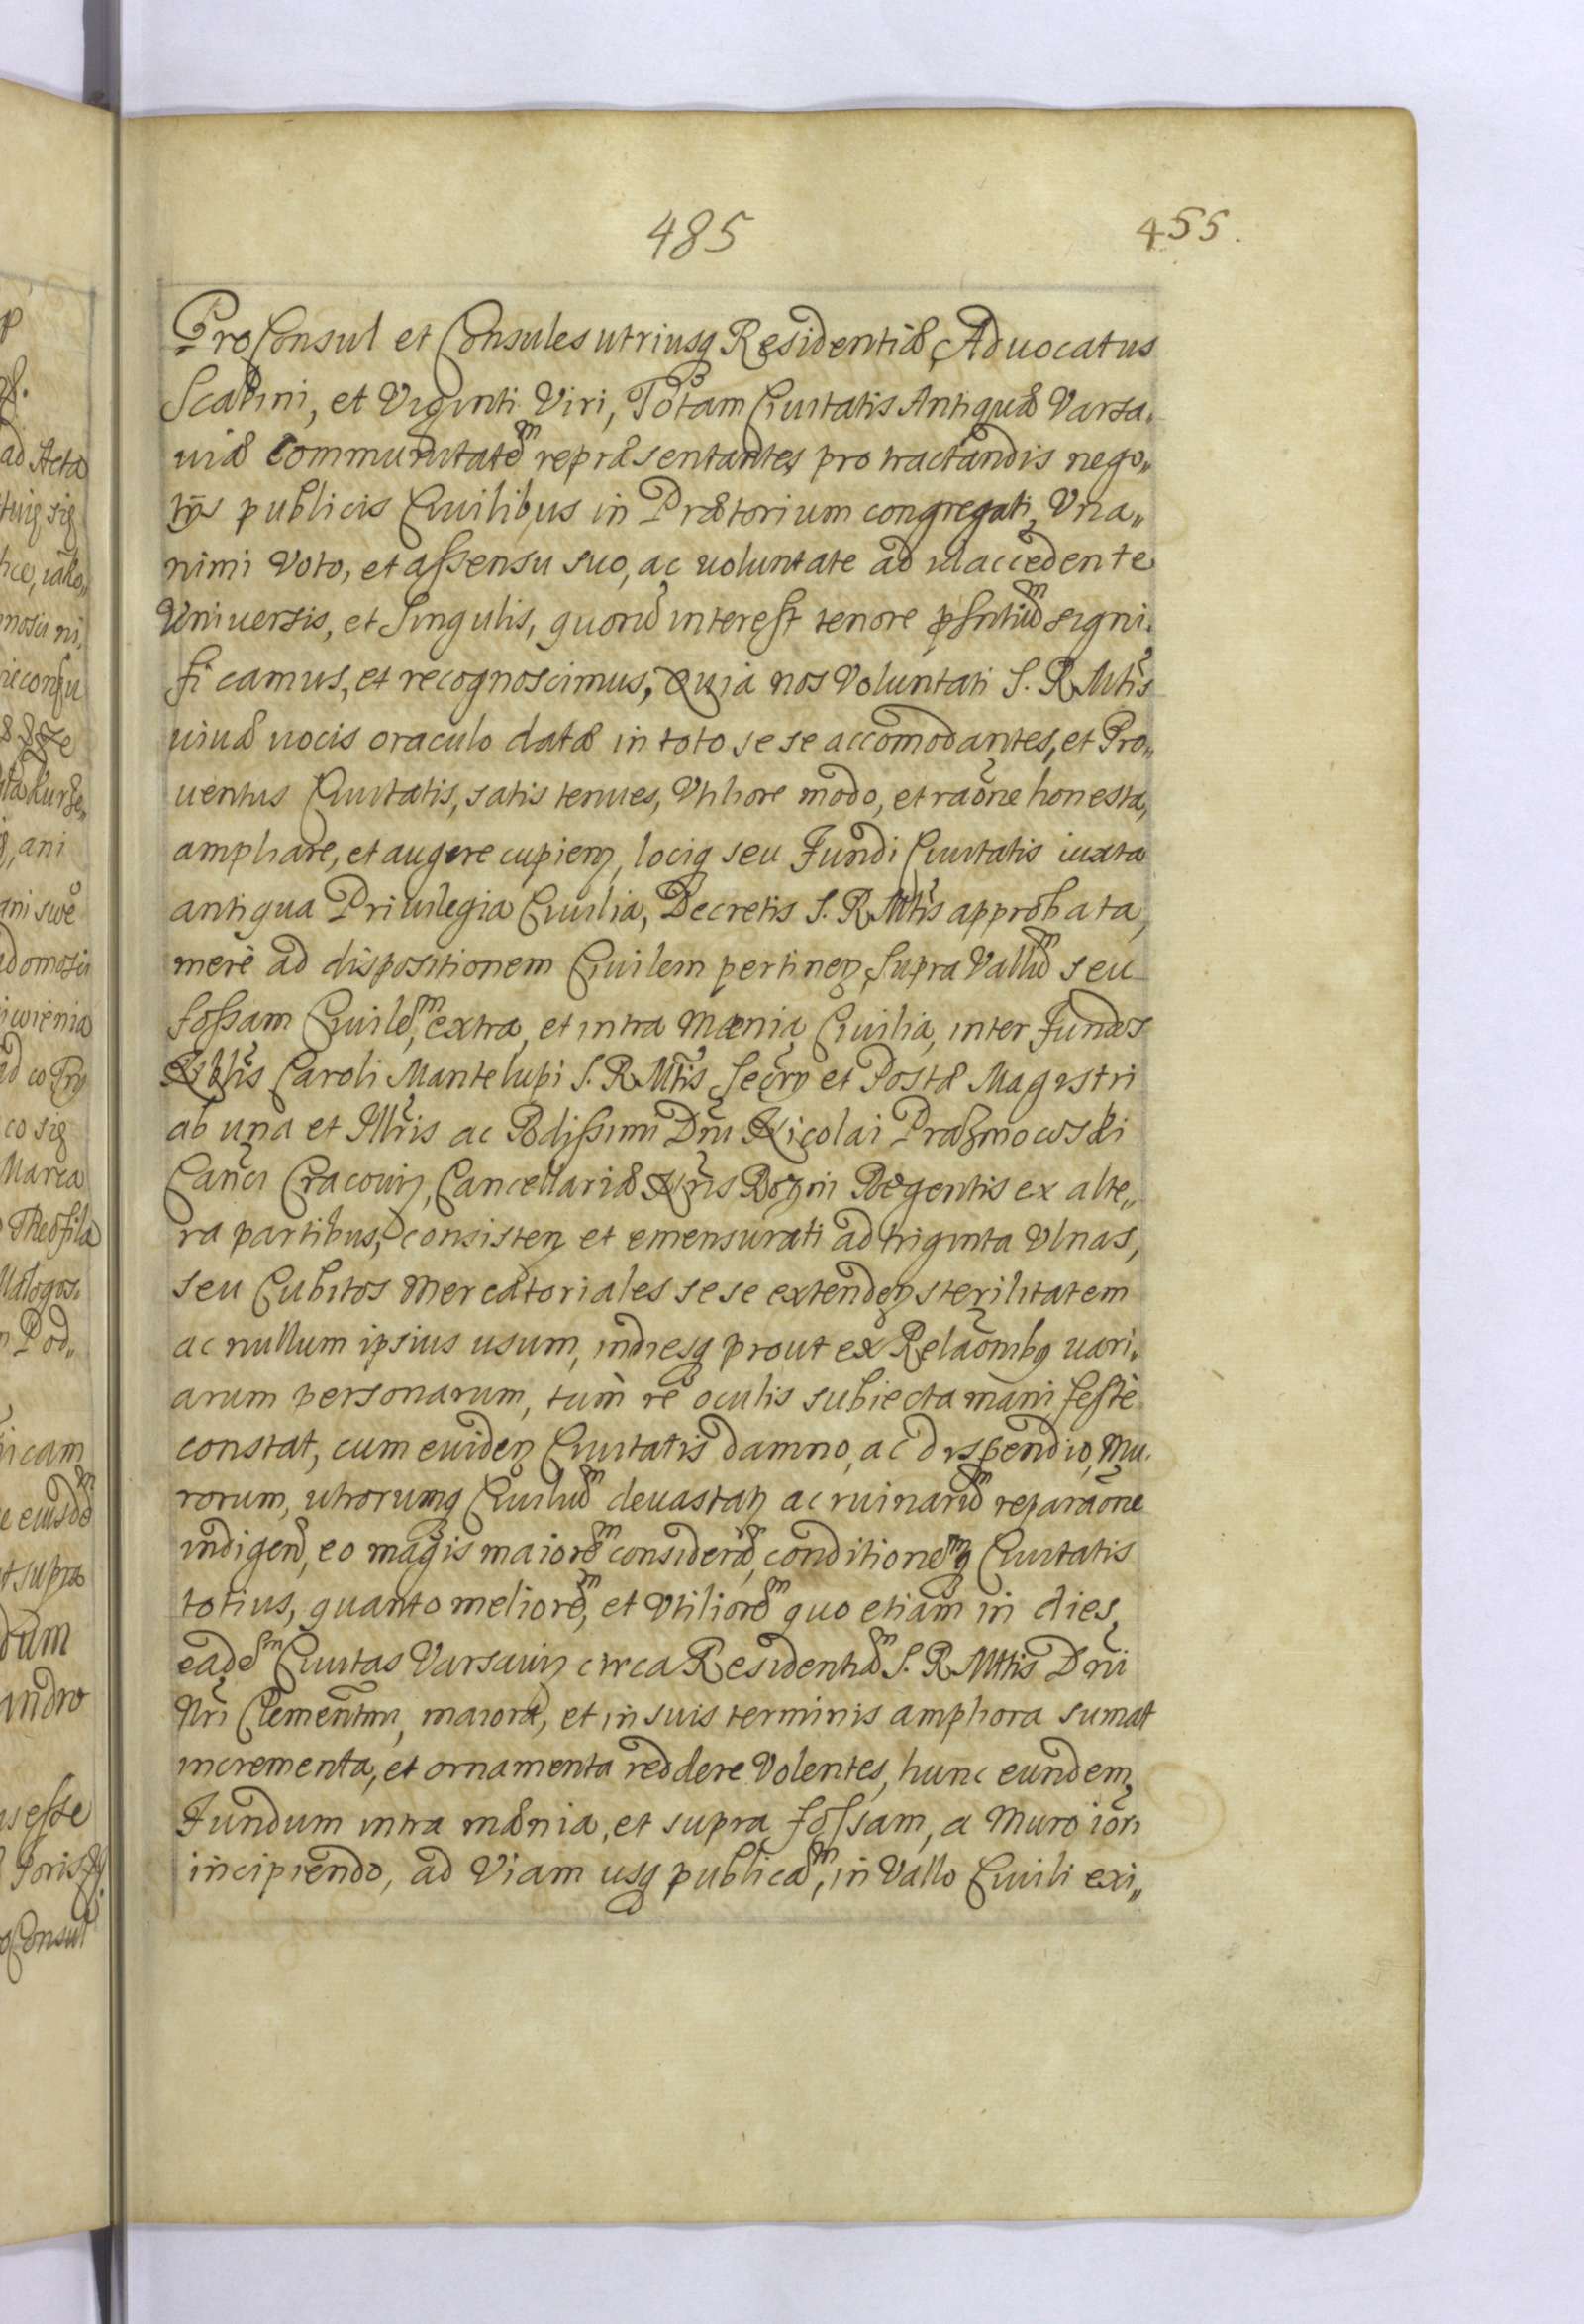 485
455.
ProConsul et Consules utriusq Residentiæ, Aduocatus
Scabini, et Viginti Viri, Totam Ciuitatis Antiquæ Varsa„
uiæ Communitatem repræsentantes, pro tractandis nego„
tijs publicis Ciuilibus in Prætorium congregati, Vna„
nimi Voto, et assensu suo, ac uoluntate ad id accedente
Vniuersis, et Singulis, quorū interest tenore pñtium signi„
ficamus, et recognoscimus, Quia nos Voluntati S. R. Mtis
uiuæ uocis oraculo datæ in toto se se accomodantes, et Pro„
uentus Ciuitatis, satis tenues, Vtiliore modo, et raõne honesta,
ampliare, et augere cupien, lociq seu Fundi Ciuitatis iuxta
antiqua Priuilegia Ciuilia, Decretis S. R. Mtis approbata,
merè ad dispositionem Ciuilem pertinen, supra Vallum seu
fossam Ciuilem, extra, et intra Mænia Ciuilia, inter Fundos
Nblis Caroli Mantelupi S. R. Mtis Secrii et Postæ Magistri
ab una et Illris ac Rdissimi Dni Nicolai Prażmowski
Canci Cracouien, Cancellariæ Regni Regentis ex alte„
ra partibus, consisten et emensurati ad triginta Vlnas,
seu Cubitos Mercatoriales sese extenden sterilitatem
ac nullum ipsius usum, indiesq prout ex Relaõnibq uari„
arum personarum, tum re oculis subiecta manifestè
constat, cum euiden Ciuitatis damno, ac dispendio, Mu„
rorum, utrorumq Ciuilium deuastan ac ruinarum reparaõne
indigen, eo magis maiorem considerã, conditionemq Ciuitatis
totius, quanto meliorem, et Vtiliorem quo etiam in dies,
eadem Ciuitas Varsauien circa Residentiam S. R. Mttis Dni
Nri Clementmi, maiora, et in suis terminis ampliora sumat
incrementa, et ornamenta reddere Volentes, hunc eundem
Fundum intra mænia, et supra fossam, a Muro iõri
incipiendo, ad Viam usq publicam, in Vallo Ciuili exi„